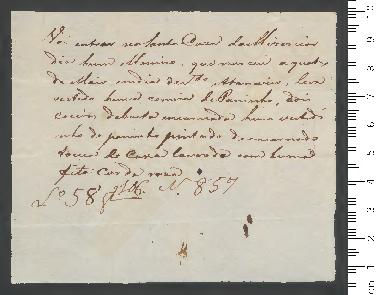 Vai entrar na Santa Caza da Mizericor
dia huma Menina, que nasceu a quatro
de Maio, no dia de Sto. Atanazio, leva
vestida huma camiza de Paninho, dois
coeiros de baeta encarnada huma vestidi
nho de paninho pintado de encarnado
touca de Caça lavrada com huma
fita cor de roza
Lo. 58 N. 859